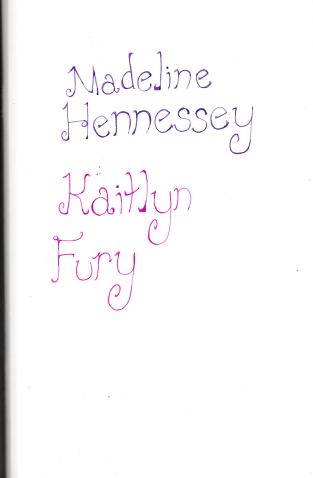 Madeline
Hennessey
Kaitlyn
Fury